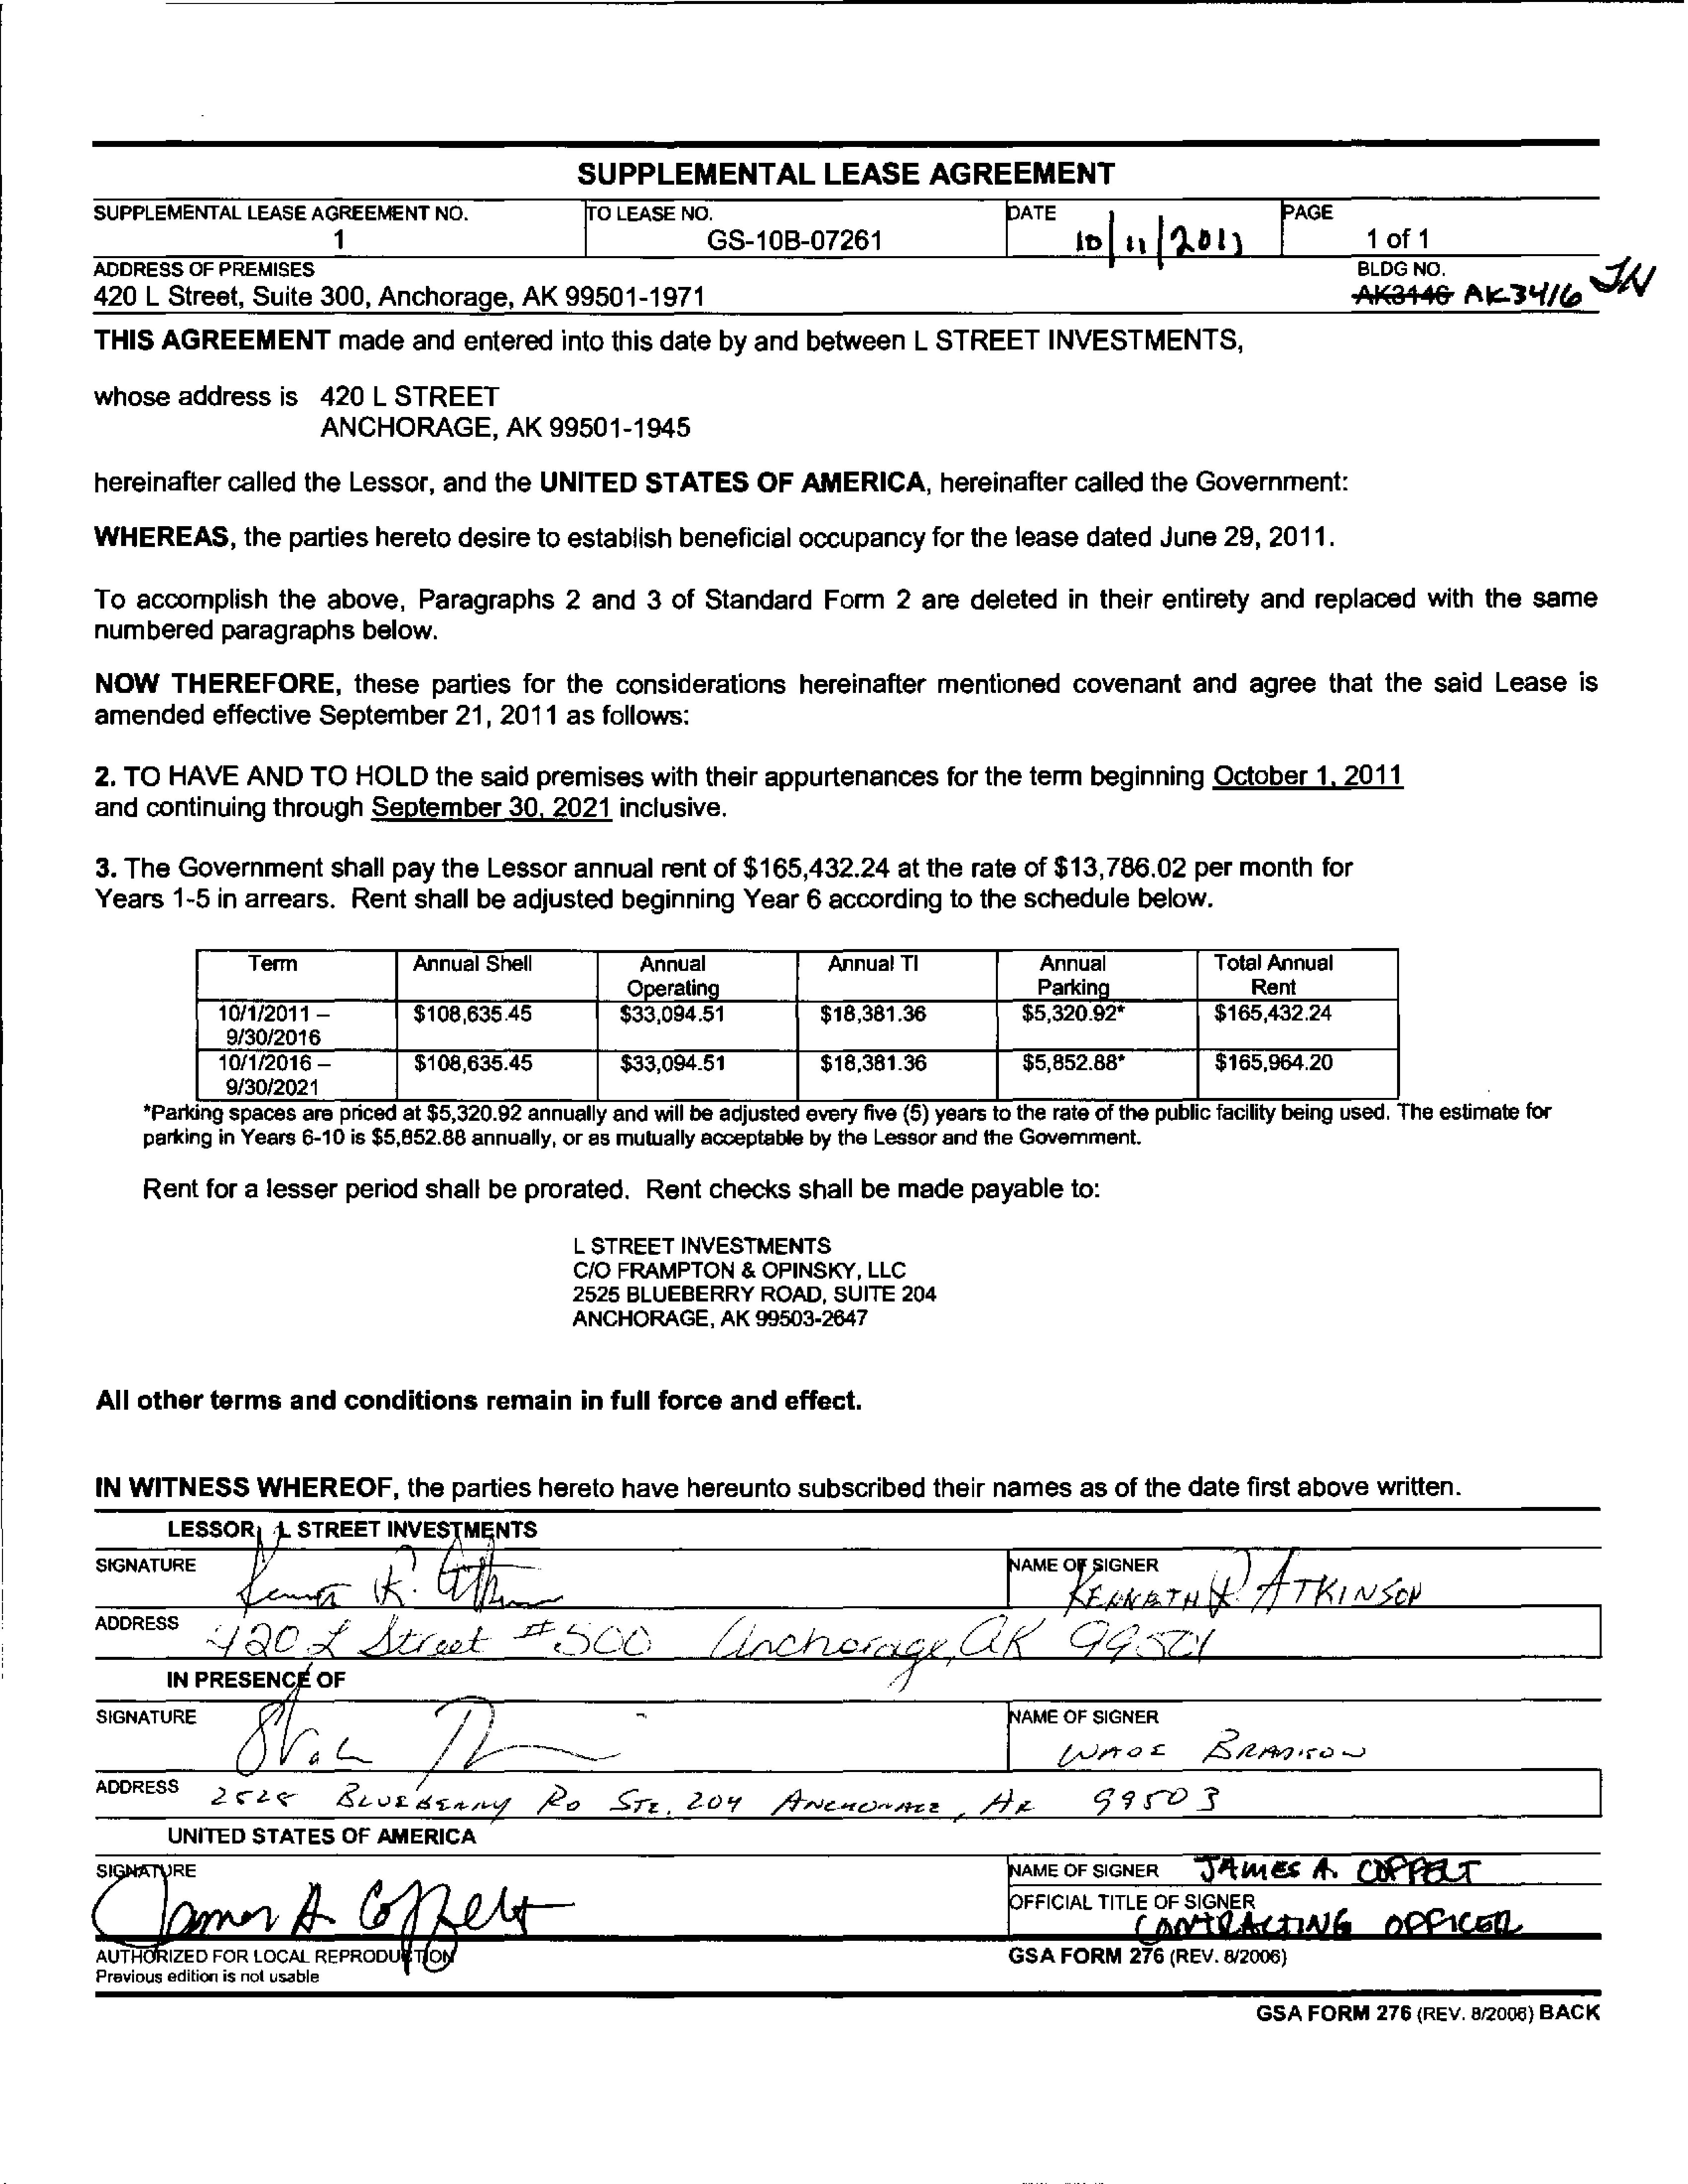 SUPPLEMENTAL LEASE AGREEMENT
SUPPLEMENTAL LEASE AGREEMENT NO.
1
TO LEASE NO.
GS-10B-07261
DATE
10/11/2011
PAGE
1 of 1
ADDRESS OF PREMISES
420 L Street, Suite 300, Anchorage, AK 99501-1971
BLDG NO.
AK3146 AK3416 JN
THIS AGREEMENT made and entered into this date by and between L STREET INVESTMENTS,
whose address is 420 L STREET
ANCHORAGE, AK 99501-1945
hereinafter called the Lessor, and the UNITED STATES OF AMERICA, hereinafter called the Government:
WHEREAS, the parties hereto desire to establish beneficial occupancy for the lease dated June 29, 2011.
To accomplish the above, Paragraphs 2 and 3 of Standard Form 2 are deleted in their entirety and replaced with the same
numbered paragraphs below.
NOW THEREFORE, these parties for the considerations hereinafter mentioned covenant and agree that the said Lease is
amended effective September 21, 2011 as follows:
2. TO HAVE AND TO HOLD the said premises with their appurtenances for the term beginning October 1, 2011
and continuing through September 30, 2021 inclusive.
3. The Government shall pay the Lessor annual rent of $165,432.24 at the rate of $13,786.02 per month for
Years 1-5 in arrears. Rent shall be adjusted beginning Year 6 according to the schedule below.
Term Annual Shell Annual Operating Annual TI Annual Parking Total Annual Rent
10/1/2011 – 9/30/2016 $108,635.45 $33,094.51 $18,381.36 $5,320.92* $165,432.24
10/1/2016 – 9/30/2021 $108,635.45 $33,094.51 $18,381.36 $5,852.88* $165,964.20
*Parking spaces are priced at $5,320.92 annually and will be adjusted every five (5) years to the rate of the public facility being used. The estimate for
parking in Years 6-10 is $5,852.88 annually, or as mutually acceptable by the Lessor and the Government.
Rent for a lesser period shall be prorated. Rent checks shall be made payable to:
L STREET INVESTMENTS
C/O FRAMPTON & OPINSKY, LLC
2525 BLUEBERRY ROAD, SUITE 204
ANCHORAGE, AK 99503-2647
All other terms and conditions remain in full force and effect.
IN WITNESS WHEREOF, the parties hereto have hereunto subscribed their names as of the date first above written.
LESSOR, L STREET INVESTMENTS
SIGNATURE
NAME OF SIGNER
KENNETH R. ATKINSON
ADDRESS
420 L Street #500 Anchorage, AK 99501
IN PRESENCE OF
SIGNATURE
NAME OF SIGNER
WADE
ADDRESS
2525 BLUEBERRY RD STE. 204 ANCHORAGE, AK 99503
UNITED STATES OF AMERICA
SIGNATURE
James A Coppelt
NAME OF SIGNER JAMES A. COPPELT
OFFICIAL TITLE OF SIGNER
CONTRACTING OFFICER
AUTHORIZED FOR LOCAL REPRODUCTION
Previous edition is not usable
GSA FORM 276 (REV. 8/2006)
GSA FORM 276 (REV. 8/2006) BACK